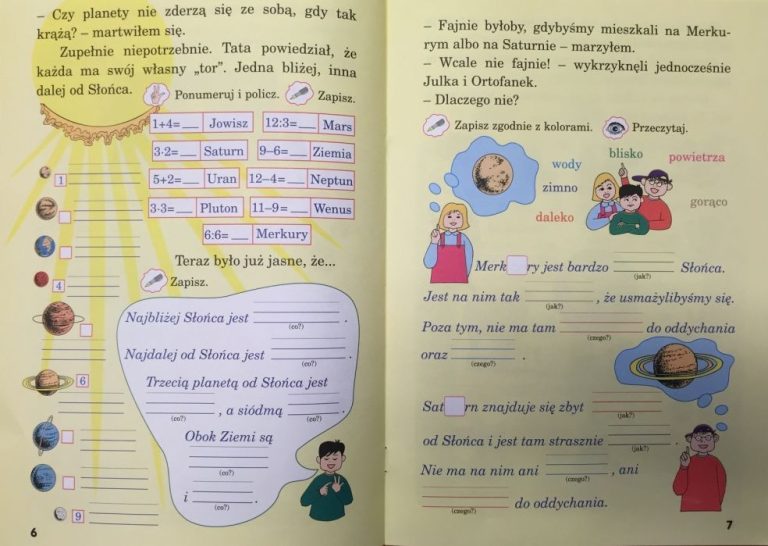 – Czy planety nie zderzą się ze sobą, gdy tak
krążą? – martwiłem się.
Zupełnie niepotrzebnie. Tata powiedział, że
każda ma swój własny „tor”. Jedna bliżej, inna
dalej od Słońca.
Ponumeruj i policz. Zapisz.
1+4=___ Jowisz 12:3=___ Mars
3·2=___ Saturn 9–6=___ Ziemia
5+2=___ Uran 12–4=___ Neptun
3·3=___ Pluton 11–9=___ Wenus
6:6=___ Merkury
1
4
6
9
Teraz było już jasne, że...
Zapisz.
Najbliżej Słońca jest ___ .
(co?)
Najdalej od Słońca jest ___ .
(co?)
Trzecią planetą od Słońca jest
___ , a siódmą ___ .
(co?) (co?)
Obok Ziemi są
___
(co?)
i ___ .
(co?)
6
– Fajnie byłoby, gdybyśmy mieszkali na Merku-
rym albo na Saturnie – marzyłem.
– Wcale nie fajnie! – wykrzyknęli jednocześnie
Julka i Ortofanek.
– Dlaczego nie?
Zapisz zgodnie z kolorami. Przeczytaj.
wody blisko powietrza
zimno
daleko gorąco
Merk ry jest bardzo ___ Słońca.
(jak?)
Jest na nim tak ___ , że usmażylibyśmy się.
(jak?)
Poza tym, nie ma tam ___ do oddychania
(czego?)
oraz ___ .
(czego?)
Sat rn znajduje się zbyt ___
(jak?)
od Słońca i jest tam strasznie ___ .
(jak?)
Nie ma na nim ani ___ , ani
(czego?)
___ do oddychania.
(czego?)
7